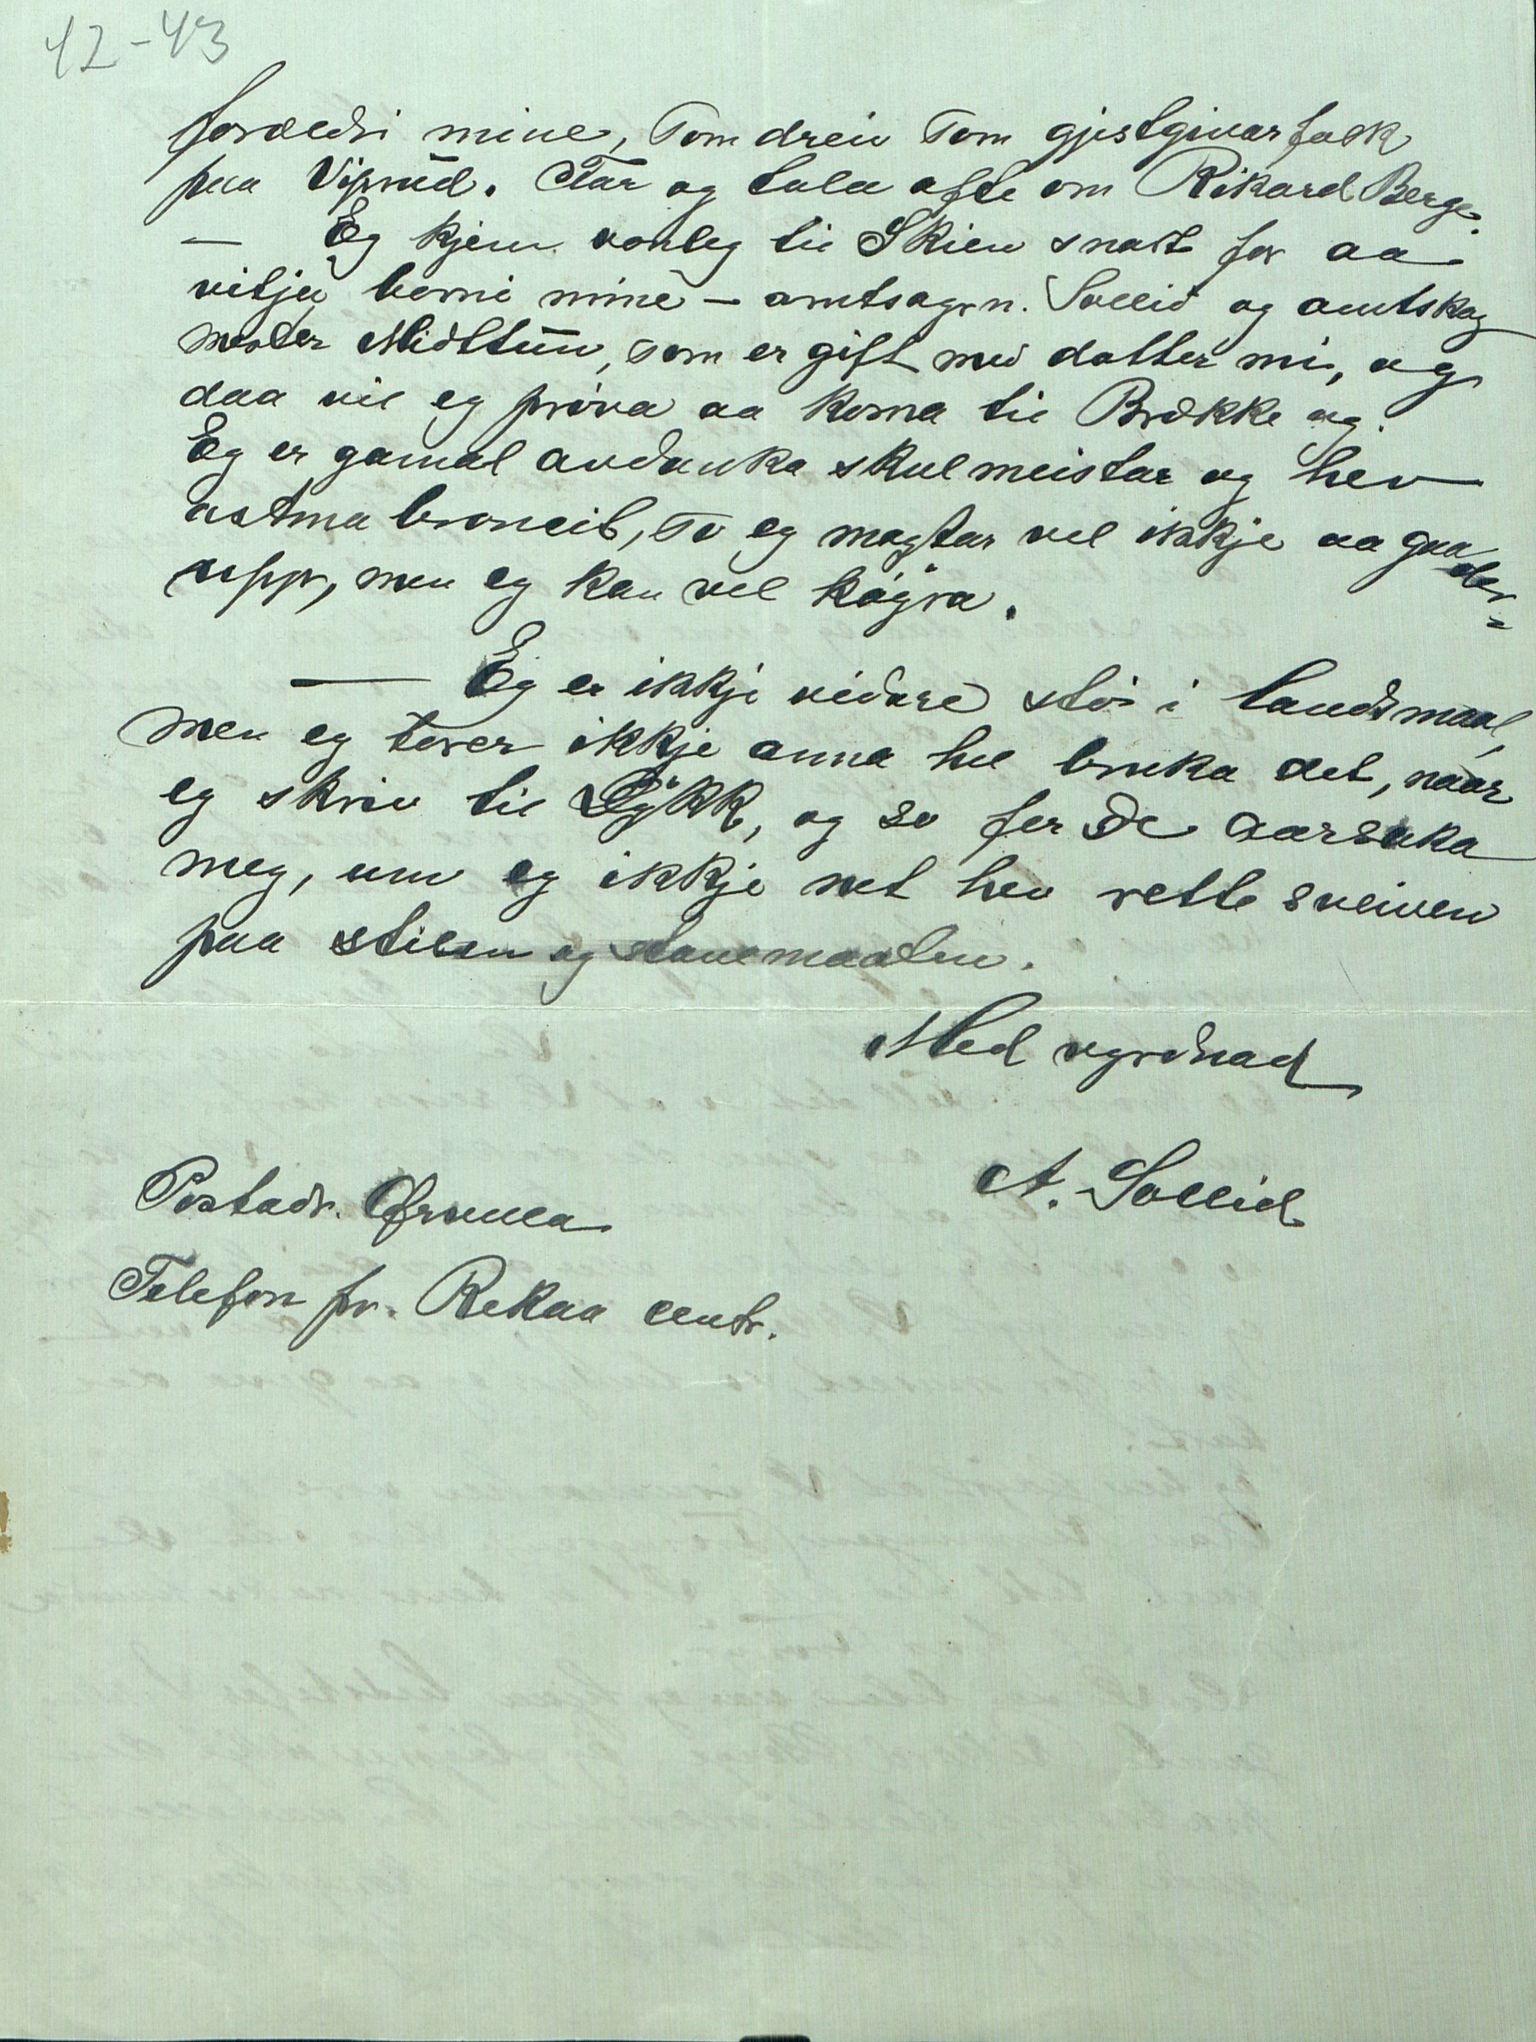 42-43
foreldri mine, som dreiv som gjestgivarfolk
paa Viprud. Far og tala ofte om Rikard Berge.
— Eg kjem vonleg til Skien snart for aa
vitja borni mine – amtsagrn. Sollid og amtskog
mester Midttun, som er gift med dotter mi, og
daa vil eg prøva aa koma til Brekke og.
Eg er gamal avdanka skulmeistar og hev
astma broncit, so eg magtar vel ikkje aa gaa der-
upp, men eg kan vel køyra.
— Eg er ikkje vidare stø i landsmaal,
men eg torer ikkje anna hel bruka det, naar
eg skriv til Dykk, og so fer De orsaka
meg, um eg ikkje net hev rette sveiven
paa stilen og stavemaaten.
Med vyrdnad
A. Sollid
Postadr. Ofruvua
Telefon pr. Rekaa centr.